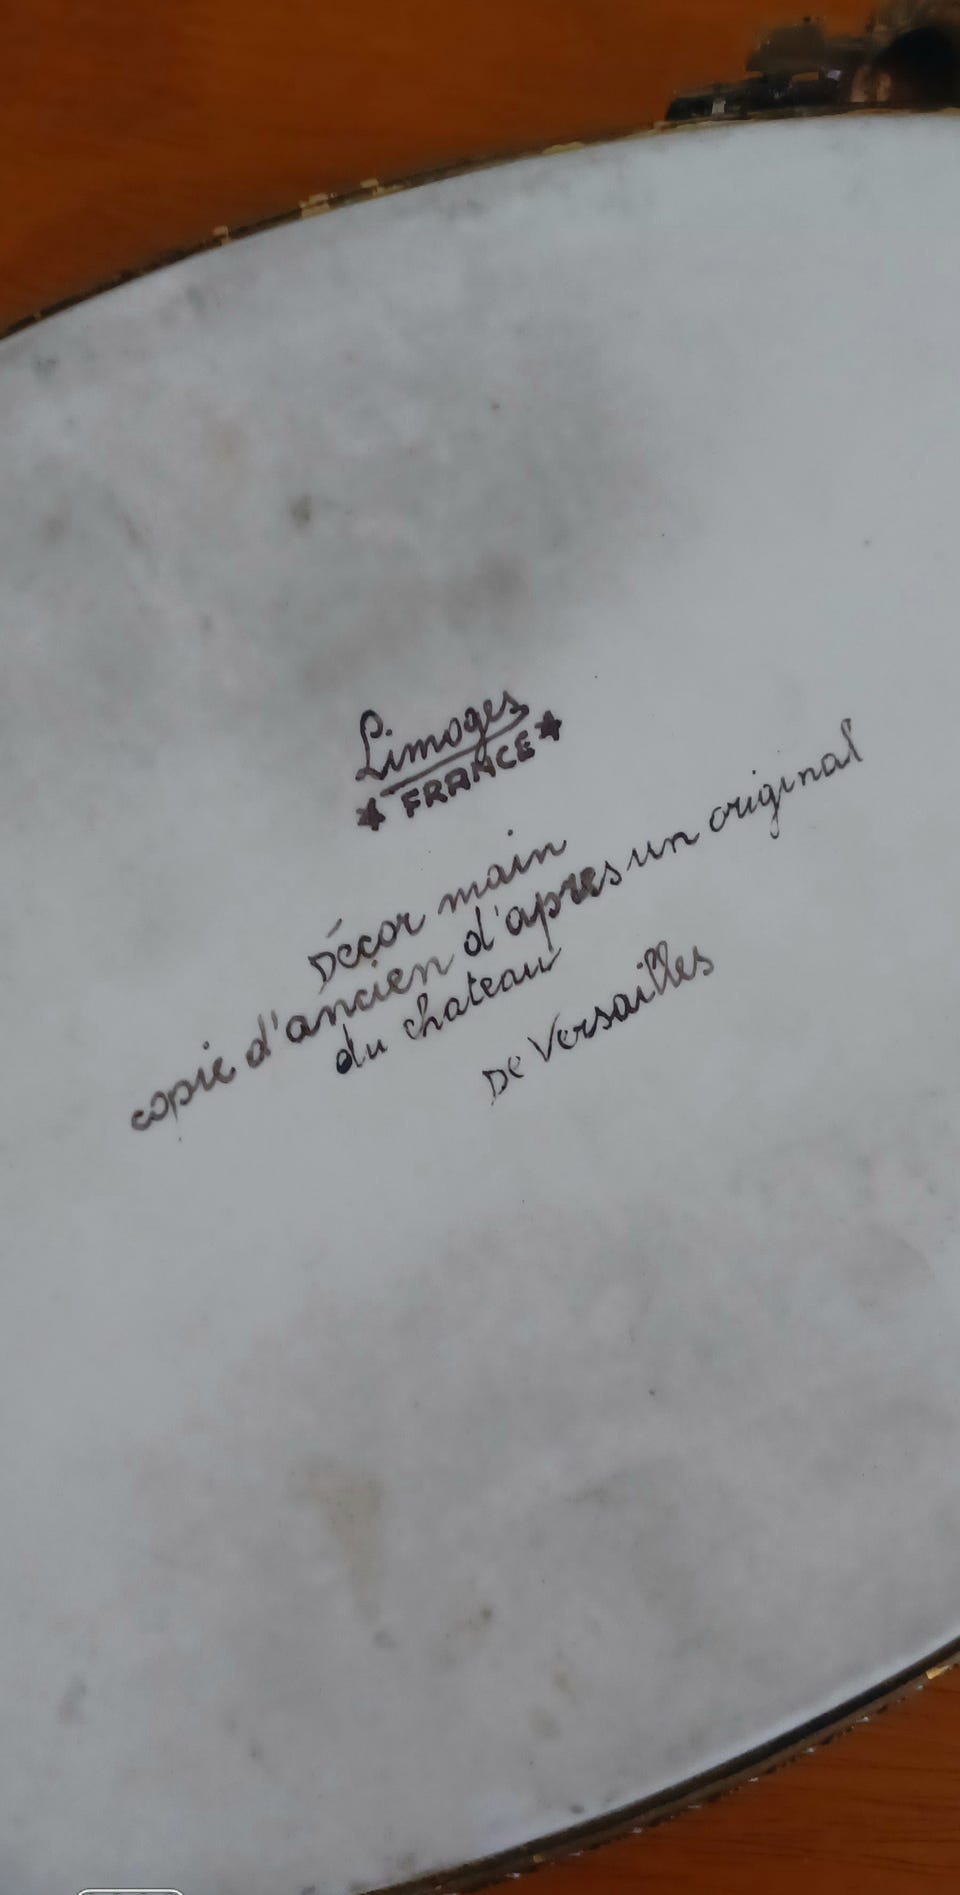 Limoges
★ FRANCE ★
Décor main
copie d'ancien d'apres un original
du chateau
De Versailles